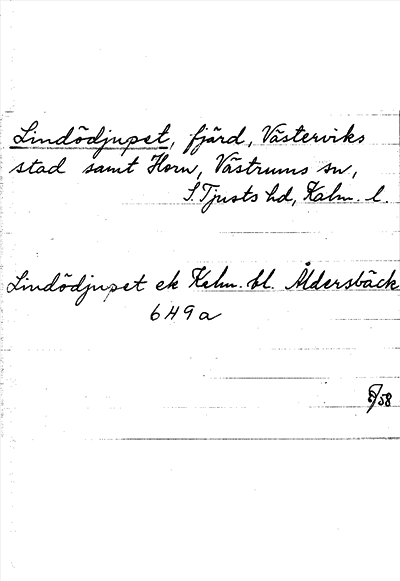 Lindödjupet, fjärd, Västerviks
stad samt Horn, Västrums sn,
S. Tjusts hd, Kalm. l.
Lindödjupet ek Kalm. bl. Åldersbäck
649a
/58